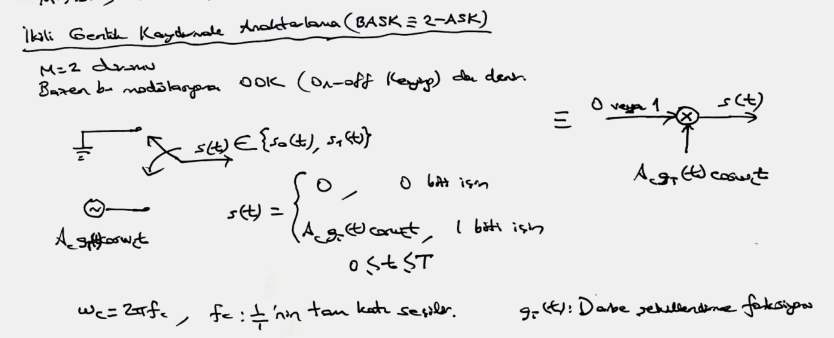 İkili Genlik Kaydırmalı Anahtarlama (BASK ≡ 2-ASK)
M=2 durumu
Bazen bu modülasyona OOK (On-off Keying) da denir.
s(t) ∈ {s₀(t), s₁(t)}
≡ 0 veya 1 ⊗ s(t)
A_c g_T(t) cosω_c t
A_c g_T(t) cosω_c t
s(t) = { 0, 0 biti için
A_c g_T(t) cosω_c t, 1 biti için
0 ≤ t ≤ T
ω_c = 2πf_c, f_c : 1/T 'nin tam katı seçilir. g_T(t): Darbe şekillendirme fonksiyonu